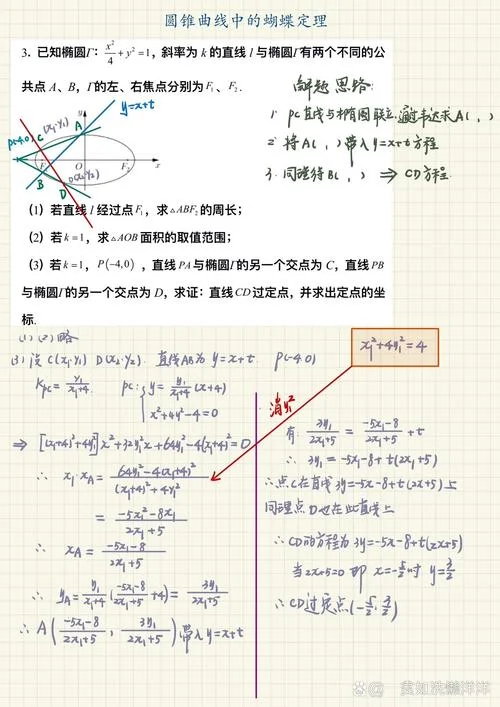 圆锥曲线中的蝴蝶定理
3. 已知椭圆Γ: x²/4 + y² = 1, 斜率为 k 的直线 l 与椭圆Γ有两个不同的公
共点 A、B, Γ的左、右焦点分别为 F₁、F₂.
y=x+t
P(-4,0) C (x₁,y₁) A
F₁ F₂ x
B D(x₂,y₂)
y
解题思路:
1. PC直线与椭圆联立, 韦达求A( , )
2. 将A( , )带入y=x+t方程
3. 同理得B( , ) ⇒ CD方程.
(1) 若直线 l 经过点 F₁, 求△ABF₂的周长;
(2) 若k=1, 求△AOB面积的取值范围;
(3) 若k=1, P(-4,0), 直线PA与椭圆Γ的另一个交点为 C, 直线PB
与椭圆Γ的另一个交点为 D, 求证: 直线CD过定点, 并求出定点的坐
标.
(1) (2) 略
(3) 设 C(x₁,y₁) D(x₂,y₂). 直线AB为 y=x+t. P(-4,0)
K_PC = y₁/(x₁+4). PC: { y = y₁/(x₁+4) (x+4)
x²+4y²-4=0
⇒ [(x₁+4)²+4y₁²]x²+32y₁²x+64y₁²-4(x₁+4)²=0
∴ x₁·x_A = (64y₁²-4(x₁+4)²)/((x₁+4)²+4y₁²)
= (-5x₁²-8x₁)/(2x₁+5)
∴ x_A = (-5x₁-8)/(2x₁+5)
∴ y_A = y₁/(x₁+4) ((-5x₁-8)/(2x₁+5)+4) = 3y₁/(2x₁+5)
∴ A((-5x₁-8)/(2x₁+5), 3y₁/(2x₁+5)) 带入 y=x+t
x₁²+4y₁²=4
消y₁²
有: 3y₁/(2x₁+5) = (-5x₁-8)/(2x₁+5) + t
∴ 3y₁ = -5x₁-8+t(2x₁+5)
∴点C在直线3y=-5x-8+t(2x+5)上
同理点D也在此直线上
∴CD的方程为3y=-5x-8+t(2x+5)
当2x+5=0 即 x=-5/2时 y=3/2
∴CD过定点(-5/2, 3/2)